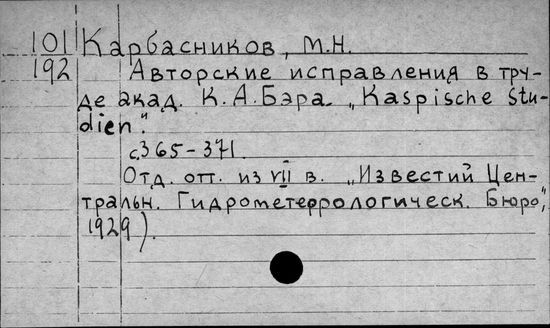 101 Карбасников, М.Н.
192 Авторские исправления в тру-
де акад. К.А.Бэра „Kaspische Stu-
dien".
с.365-371.
Отд. отт. из VII в. „Известий Цен-
тральн. Гидрометеррологическ. Бюро",
1929).